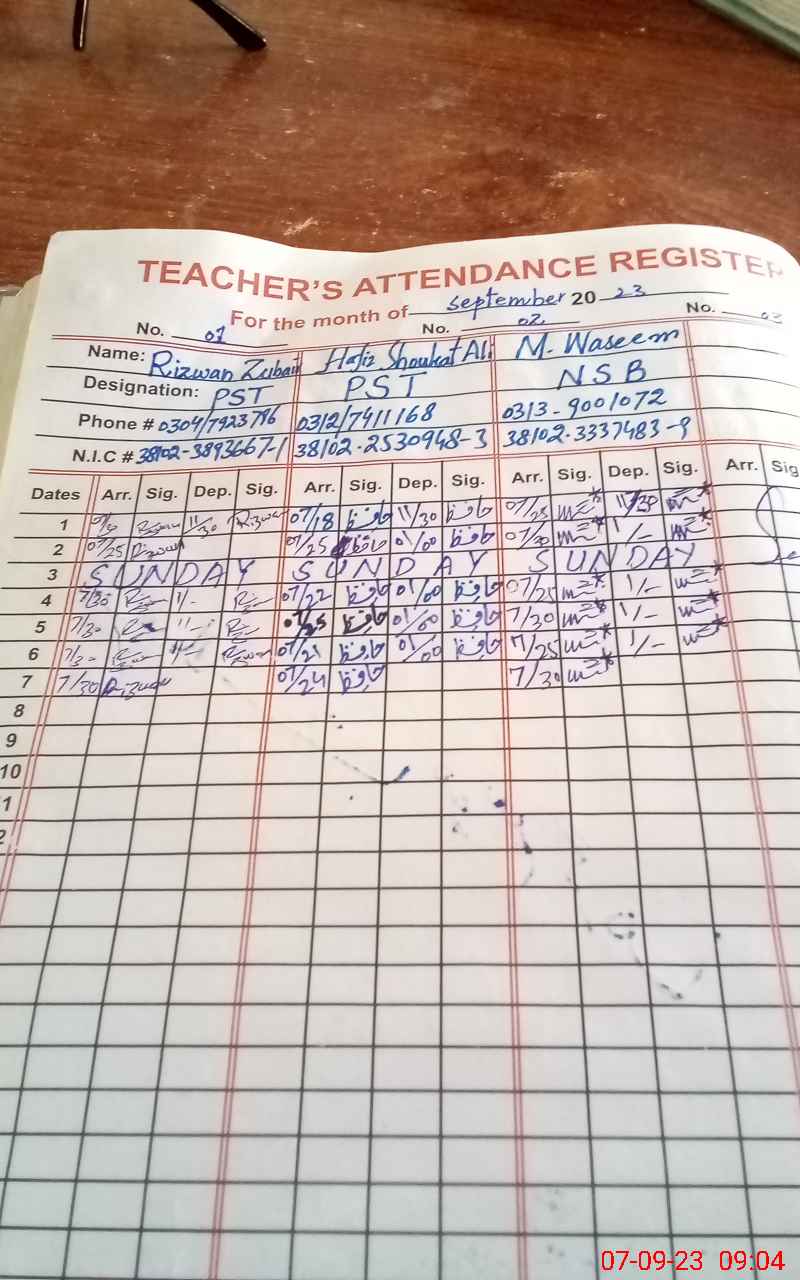 TEACHER'S ATTENDANCE REGISTER
For the month of September 20 23
No. 01 No. 02 No. 03
Name: Rizwan Zubair Hafiz Shoukat Ali M. Waseem
Designation: PST PST NSB
Phone # 0304/7923796 0312/7411168 0313-9001072
N.I.C # 38102-3893667-1 38102-2530948-3 38102-3337483-9
Dates Arr. Sig. Dep. Sig. Arr. Sig. Dep. Sig. Arr. Sig. Dep. Sig. Arr. Sig
1 11/30 Rizwan 07/18 حافظ 11/30 حافظ 07/25 11/30
2 07/25 Rizwan 07/25 حافظ 01/00 حافظ 07/30 1/-
3 SUNDAY SUNDAY SUNDAY
4 7/30 1/- 07/22 حافظ 01/00 حافظ 07/25 1/-
5 7/30 07/25 حافظ 01/00 حافظ 7/30 1/-
6 7/30 Rizwan 07/21 حافظ 01/00 حافظ 7/25 1/-
7 7/30 Rizwan 07/24 حافظ 7/30
8
9
10
1
2
07-09-23 09:04